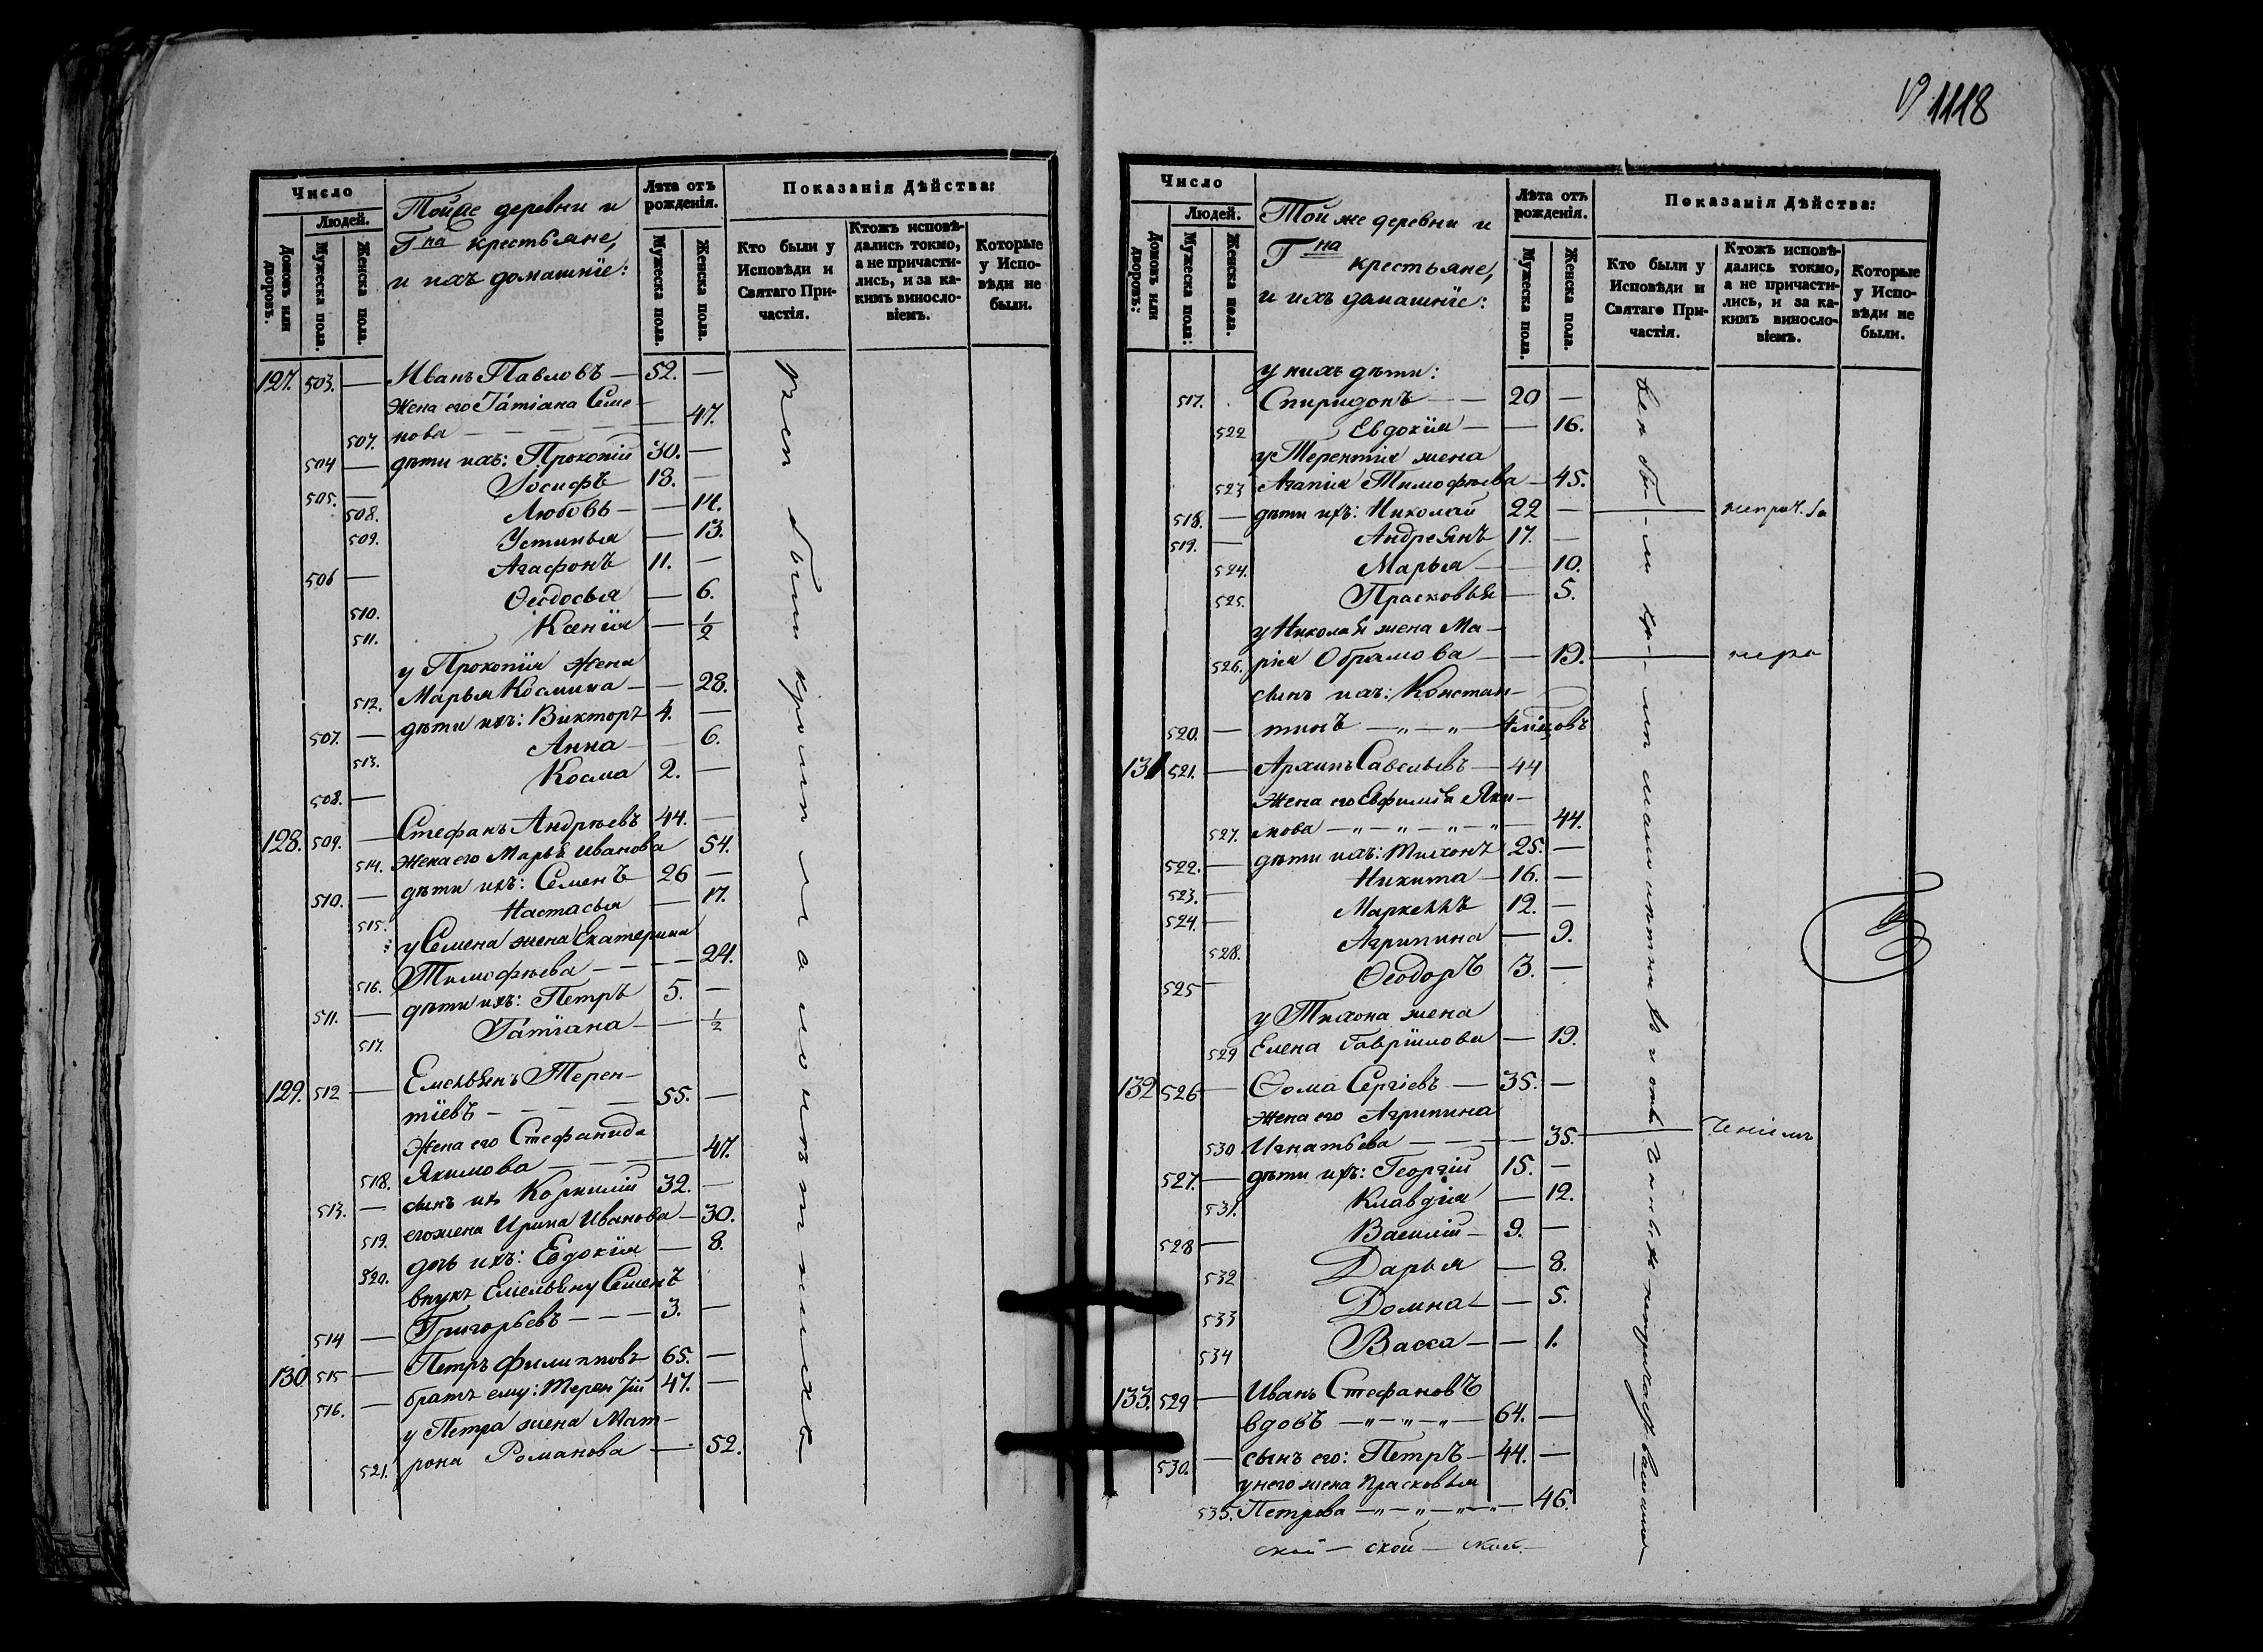 1118
Число
Людей.
Домовъ или дворовъ.
Мужеска пола.
Женска пола.
Тойже деревни и
Гна крестьяне,
и ихъ домашніе:
Лѣта отъ рожденія.
Мужеска пола.
Женска пола.
Показанія Дѣйства:
Кто были у Исповѣди и Святаго Причастія.
Ктожъ исповѣдались токмо, а не причастились, и за какимъ винословіемъ.
Которые у Исповѣди не были.
127. 503. — Иванъ Павловъ — 52. —
Жена его Татіана Семе-
507. нова — 47.
504 — дѣти ихъ: Прокопій 30. —
505. — Іосифъ 18. —
508. Любовь — 14.
509. Устинья — 13.
506 — Агафонъ 11. —
510. Ѳеодосья — 6.
511. Ксенія — 1/2
у Прокопія жена
512. Марья Космина — 28.
507. — дѣти ихъ: Викторъ 4. —
513. Анна — 6.
508. — Косма 2. —
128. 509. — Стефанъ Андреевъ 44. —
514. жена его Марья Иванова 54.
510. — дѣти ихъ: Семенъ 26 —
515. Настасья — 17.
у Семена жена Екатерина
516. Тимофѣева — 24.
511. — дѣти ихъ: Петръ 5. —
517. Татіана — 1/2
129. 512 — Емельянъ Терен-
тіевъ — 55. —
Жена его Стефанида
518. Якимова — 47.
513. — сынъ их Корнилій 32. —
519. его жена Ирина Иванова — 30.
520. дочь ихъ: Евдокія — 8.
внукъ Емельяну Семенъ
514 — Григорьевъ — 3. —
130 515 — Петръ Филипповъ 65. —
516. — братъ ему: Терентій 47. —
у Петра жена Мат-
521. рона Романова — 52.
были кромѣ малолѣтнихъ
Число
Людей.
Домовъ или дворовъ:
Мужеска пола:
Женска пола.
Той же деревни и
Гна крестьяне,
и ихъ домашніе:
Лѣта отъ рожденія.
Мужеска пола.
Женска пола.
Показанія Дѣйства:
Кто были у Исповѣди и Святаго Причастія.
Ктожъ исповѣдались токмо, а не причастились, и за какимъ винословіемъ.
Которые у Исповѣди не были.
у нихъ дѣти:
517. Спиридонъ — 20 —
522 Евдокія — 16.
у Терентія жена
523 Агапія Тимофѣева — 45.
518. — дѣти ихъ: Николай 22 —
519. — Андреянъ 17. —
524. Марья — 10.
525. Прасковья — 5.
у Николая жена Ма-
526. рія Обрамова — 19.
сынъ ихъ: Констан-
520. — тинъ — 4 мѣсцовъ
131 521. — Архипъ Савельевъ — 44
Жена его Евфимія Яки-
527. мова — 44.
522. — дѣти ихъ: Тихонъ 25. —
523. — Никита — 16. —
524. — Маркеллъ 12. —
528. Агрипина — 9.
525 — Ѳеодоръ 3. —
у Тихона жена
529 Елена Гавріилова — 19.
132 526 — Ѳома Сергіевъ — 35. —
Жена его Агрипина
530 Игнатьева — 35.
527. — дѣти ихъ: Георгій 15. —
531. Клавдія — 12.
528 — Василій — 9. —
532 Дарья — 8.
533 Домна — 5.
534 Васса — 1.
133. 529 — Иванъ Стефановъ
вдовъ — 64. —
530. — сынъ его: Петръ — 44. —
у него жена Прасковья
535. Петрова — 46.
ской — ской — ской —